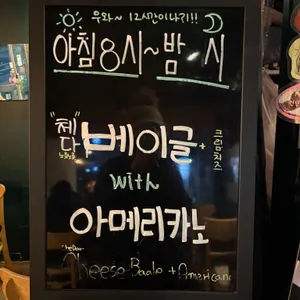 우와~ 12시간이나?!!
아침8시~밤 시
"체다" 베이글 + 크림치즈
with
아메리카노
Cheese Bagle + Americano